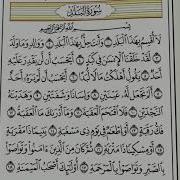 سُورَةُ الْبَلَدِ
بِسْمِ اللَّهِ الرَّحْمَٰنِ الرَّحِيمِ
لَا أُقْسِمُ بِهَٰذَا الْبَلَدِ ١ وَأَنتَ حِلٌّ بِهَٰذَا الْبَلَدِ ٢ وَوَالِدٍ وَمَا وَلَدَ
٣ لَقَدْ خَلَقْنَا الْإِنسَانَ فِي كَبَدٍ ٤ أَيَحْسَبُ أَن لَّن يَقْدِرَ عَلَيْهِ
أَحَدٌ ٥ يَقُولُ أَهْلَكْتُ مَالًا لُّبَدًا ٦ أَيَحْسَبُ أَن لَّمْ يَرَهُ أَحَدٌ
٧ أَلَمْ نَجْعَل لَّهُ عَيْنَيْنِ ٨ وَلِسَانًا وَشَفَتَيْنِ ٩ وَهَدَيْنَاهُ
النَّجْدَيْنِ ١٠ فَلَا اقْتَحَمَ الْعَقَبَةَ ١١ وَمَا أَدْرَاكَ مَا الْعَقَبَةُ ١٢
فَكُّ رَقَبَةٍ ١٣ أَوْ إِطْعَامٌ فِي يَوْمٍ ذِي مَسْغَبَةٍ ١٤ يَتِيمًا ذَا مَقْرَبَةٍ
١٥ أَوْ مِسْكِينًا ذَا مَتْرَبَةٍ ١٦ ثُمَّ كَانَ مِنَ الَّذِينَ آمَنُوا وَتَوَاصَوْا
بِالصَّبْرِ وَتَوَاصَوْا بِالْمَرْحَمَةِ ١٧ أُولَٰئِكَ أَصْحَابُ الْمَيْمَنَةِ ١٨